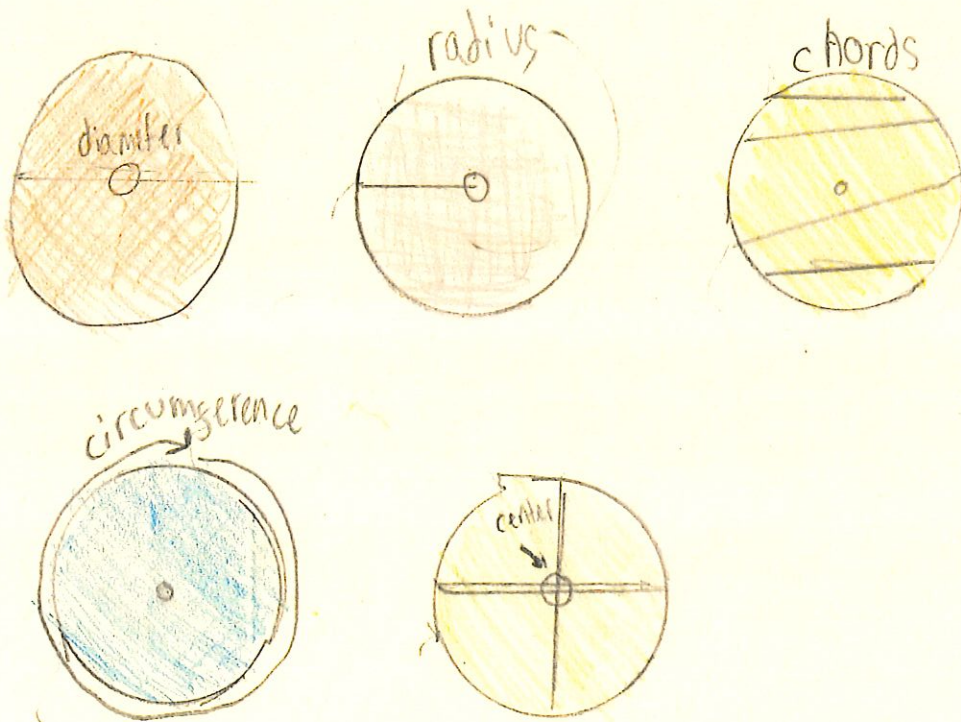 diamiter
radius
chords
circumference
center